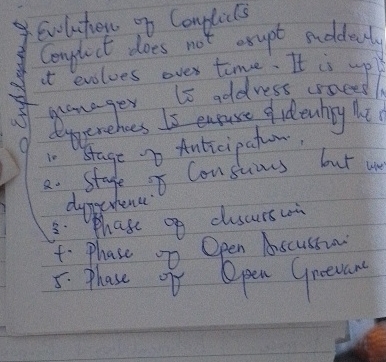 Evolution of Conflicts
Conflict does not erupt suddenly
it evolves over time. It is up
manager to address issues
differences to ensure & identify the
1. Stage of Anticipation.
2. Stage of Conscious but
difference.
3. Phase of discussion
4. Phase of Open Discussion
5. Phase of Open